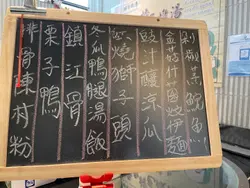 剁椒蒸魚
金菇什菌炆伊麵
豉汁釀涼瓜
紅燒獅子頭
冬瓜鴨腿湯飯
鎮江骨
栗子鴨
排骨陳村粉